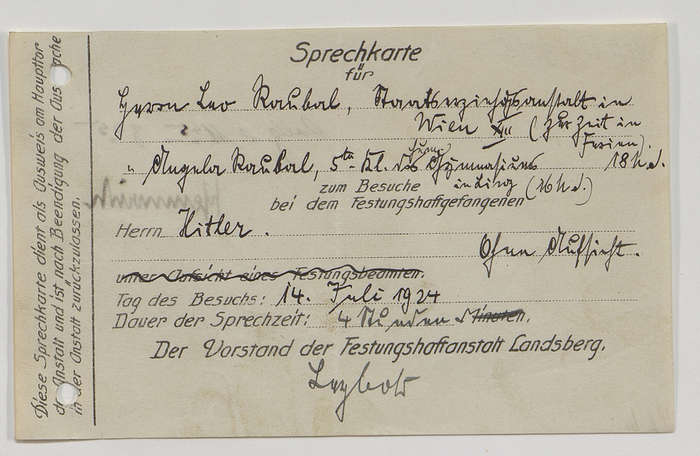 Sprechkarte
für
Herrn Leo Raubal, Staatserziehungsanstalt in
Wien XIII (zur Zeit in
Ferien).
" Angela Raubal, 5te Kl. des Gymnasiums 18 h d.
zum Besuche in Linz (16 h d.)
bei dem Festungshaftgefangenen
Herrn Hitler.
Ohne Aufsicht.
unter Aufsicht eines Festungsbeamten.
Tag des Besuchs: 14. Juli 1924
Dauer der Sprechzeit: 4 Stunden Minuten.
Der Vorstand der Festungshaftanstalt Landsberg.
Leybold
Diese Sprechkarte dient als Ausweis am Haupttor
der Anstalt und ist nach Beendigung der Aussprache
in der Anstalt zurückzulassen.